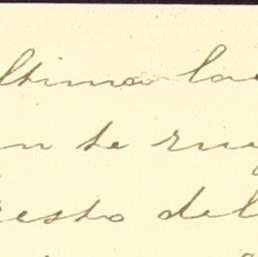 ltima la
n te rue
resto del